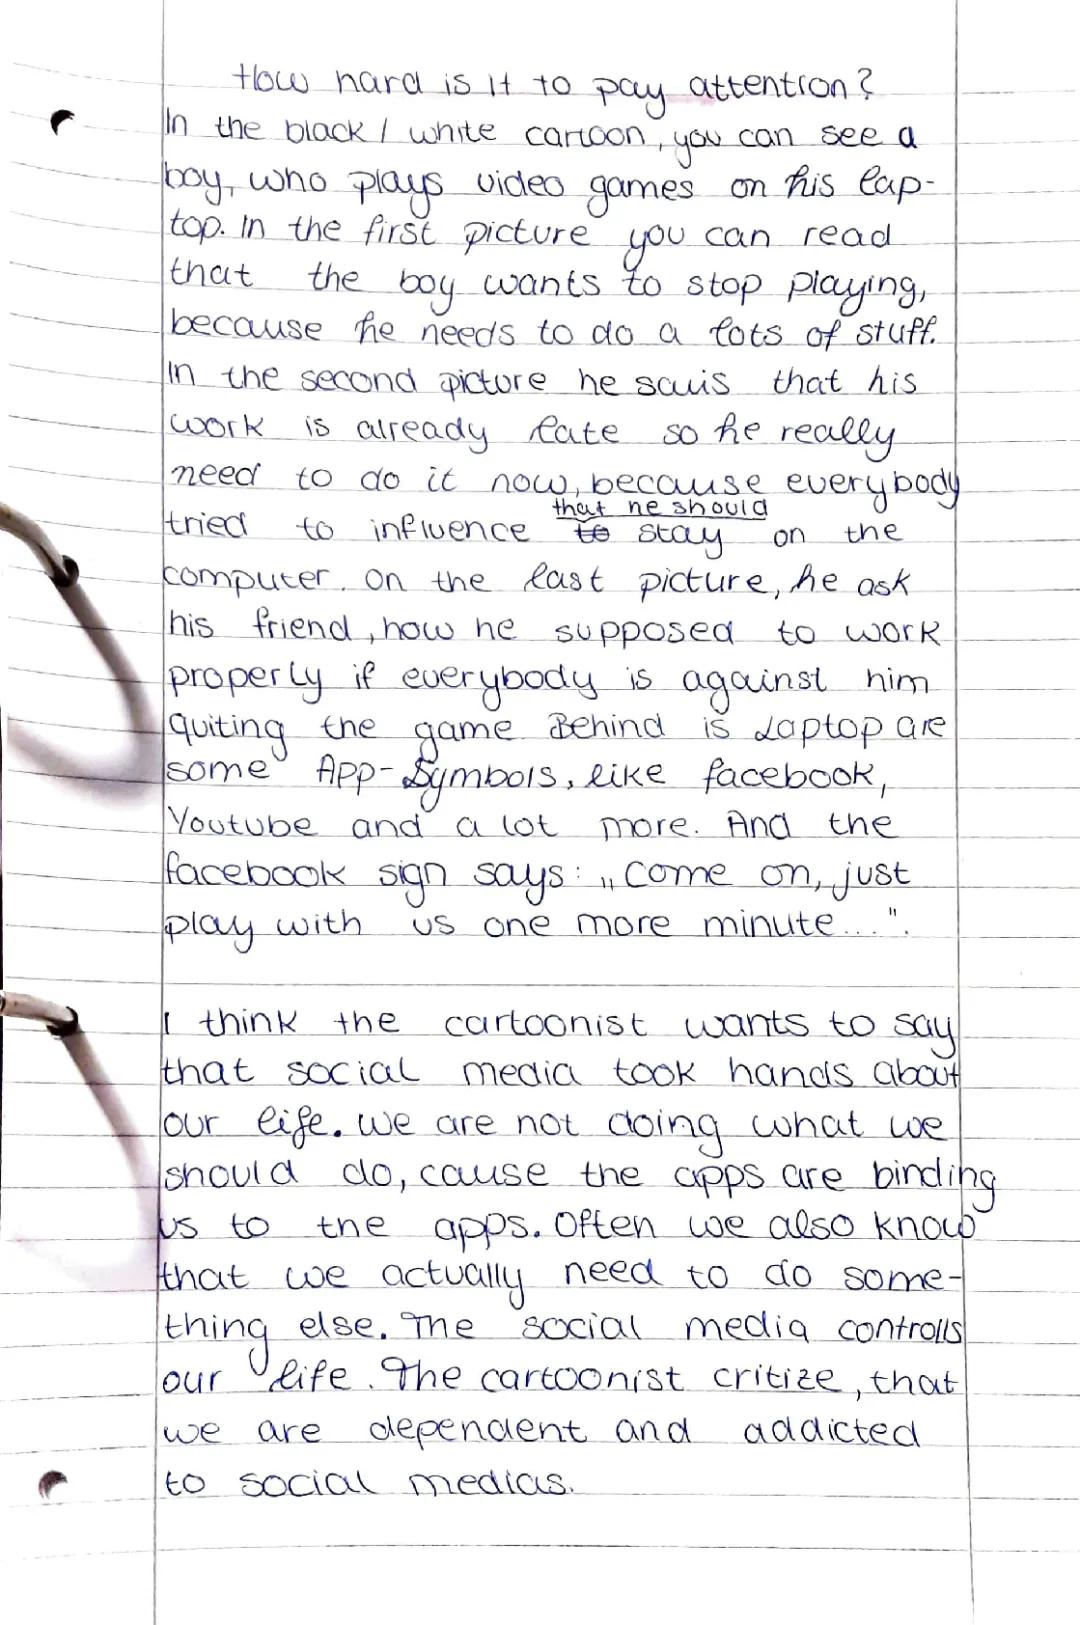 How hard is it to pay attention?
In the black / white cartoon, you can see a
boy, who plays video games on his lap-
top. In the first picture you can read
that the boy wants to stop playing,
because he needs to do a lots of stuff.
In the second picture he sais that his
work is already late so he really
need to do it now, because everybody
that he should
tried to influence to stay on the
computer. On the last picture, he ask
his friend, how he supposed to work
properly if everybody is against him
quiting the game. Behind is Laptop are
some App-Symbols, like facebook,
Youtube and a lot more. And the
facebook sign says: „Come on, just
play with us one more minute...".
I think the cartoonist wants to say
that social media took hands about
our life. We are not doing what we
should do, cause the apps are binding
us to the apps. Often we also know
that we actually need to do some-
thing else. The social media controlls
our life. The cartoonist critize, that
we are dependent and addicted
to social medias.